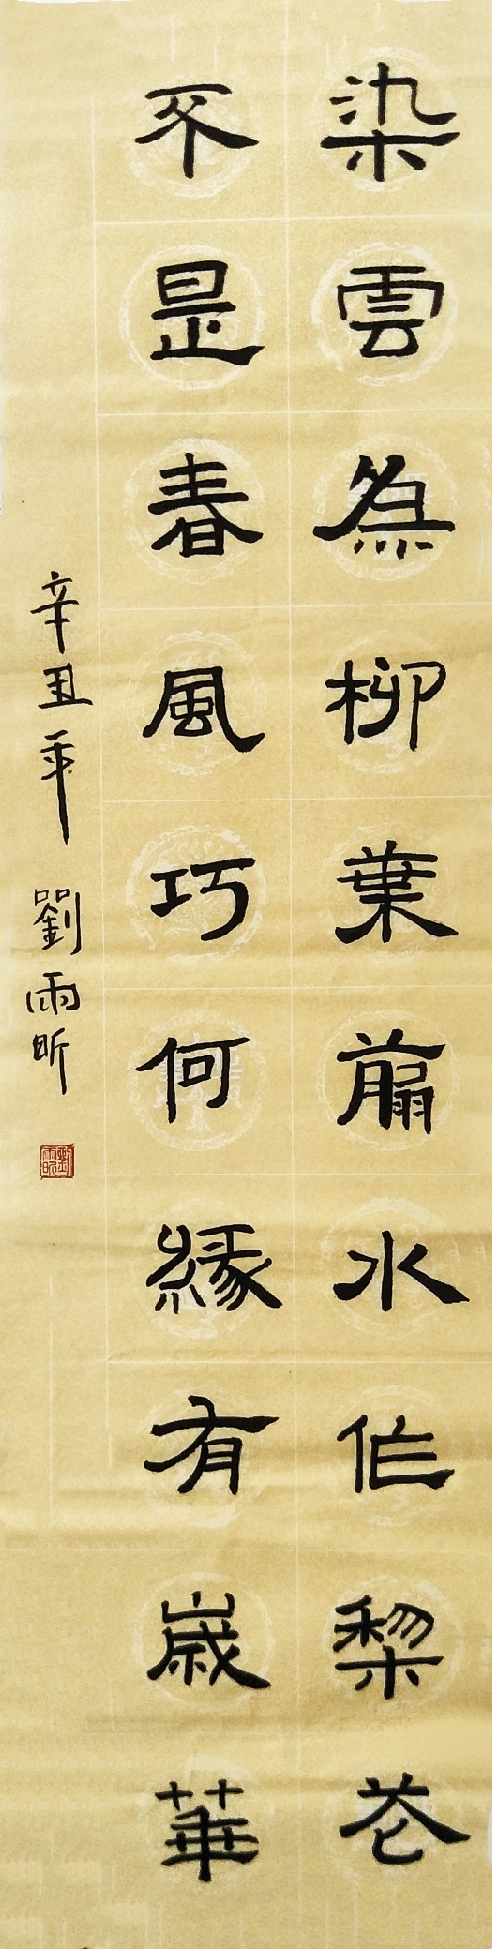 染雲為柳葉翦水作棃花
不是春風巧何緣有歲華
辛丑年 劉雨昕
劉雨昕